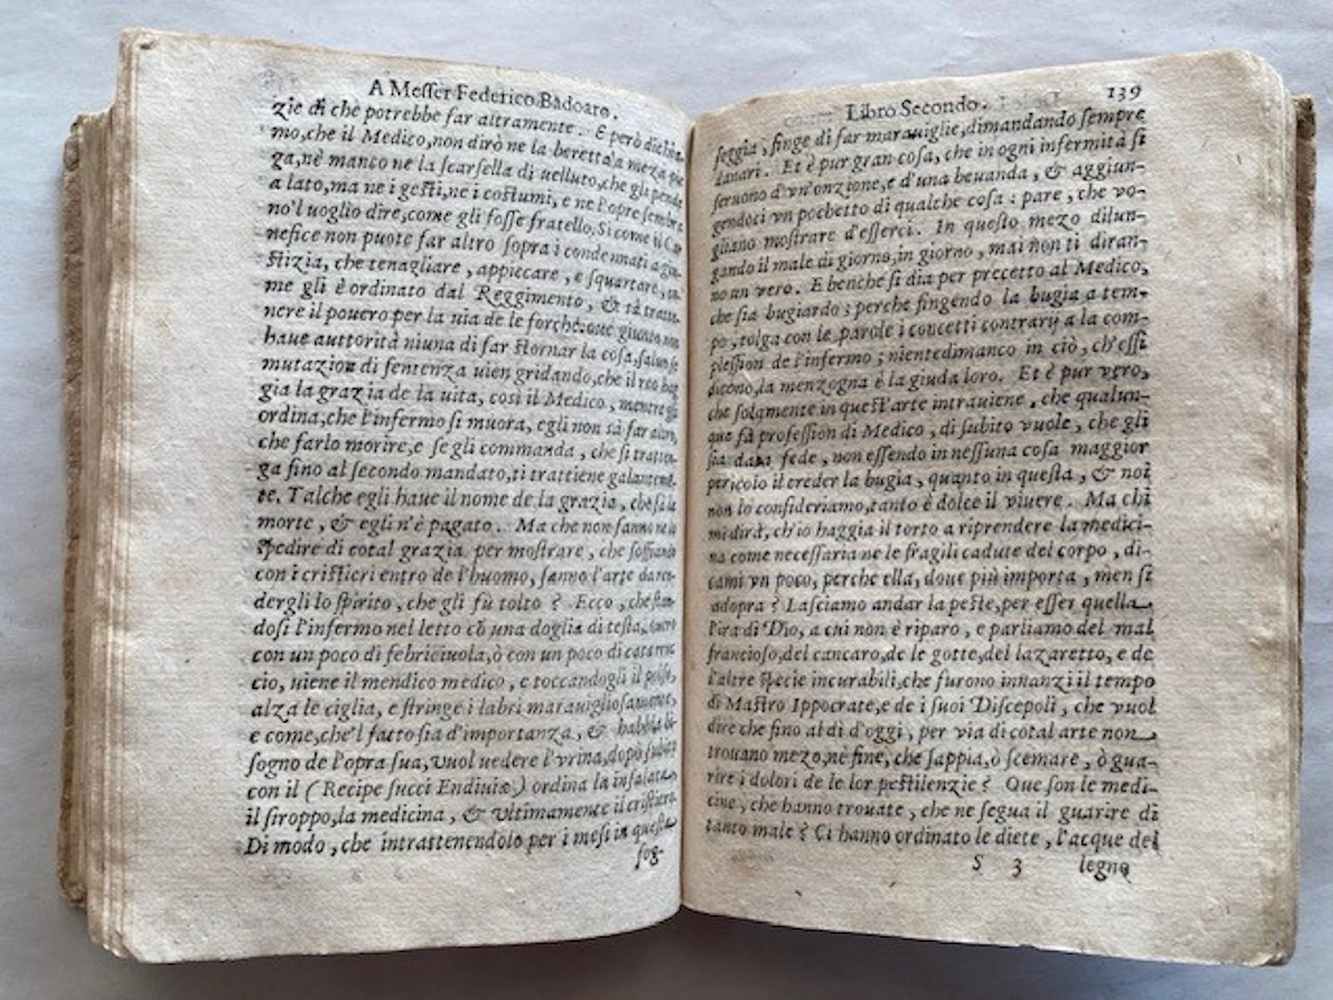 A Meſſer Federico Badoaro.
zie di che potrebbe far altramente. E però
mo, che il Medico, non dirò ne la beretta a meza
ga, nè manco ne la ſcarſella di uelluto, che gli pende
a lato, ma ne i geſti, ne i coſtumi, e ne l'opre ſembra
no'l uoglio dire, come gli foſſe fratello. Si come il Car
nefice non puote far altro ſopra i condennati a giu
ſtizia, che tenagliare, appiccare, e ſquartare,
me gli è ordinato dal Reggimento, & sà tratte-
nere il pouero per la uia de le forche: oue giunto, non
haue auttorità niuna di far ſtornar la coſa, ſaluo ſe
mutazion di ſentenza uien gridando, che il reo hag
gia la grazia de la uita, così il Medico, mentre
ordina, che l'infermo ſi muora, egli non sà far altro,
che farlo morire, e ſe gli commanda, che ſi tratten-
ga fino al ſecondo mandato, ti trattiene galantemen-
te. Talche egli haue il nome de la grazia, che fà la
morte, & egli n'è pagato. Ma che non fanno ne lo
ſpedire di cotal grazia per moſtrare, che ſoffiando
con i criſtieri entro de l'huomo, ſanno l'arte da ren-
dergli lo ſpirito, che gli fù tolto? Ecco, che ſtan-
doſi l'infermo nel letto cõ una doglia di teſta,
con un poco di febriciuola, ò con un poco di catarruc
cio, uiene il mendico medico, e toccandogli il polſo,
alza le ciglia, e ſtringe i labri marauiglioſamente,
e come, che'l fatto ſia d'importanza, & habbia bi-
ſogno de l'opra ſua, vuol uedere l'vrina, dopò ſubito
con il (Recipe ſucci Endiuiæ) ordina la inſalata,
il ſiroppo, la medicina, & vltimamente il criſtiero.
Di modo, che intrattenendolo per i meſi in queſta
fog-
Libro Secondo. 139
ſeggia, finge di far marauiglie, dimandando ſempre
danari. Et è pur gran coſa, che in ogni infermità ſi
ſeruono d'vn'onzione, e d'una beuanda, & aggiun-
gendoci vn pochetto di qualche coſa: pare, che vo-
gliano moſtrare d'eſſerci. In queſto mezo dilun-
gando il male di giorno, in giorno, mai non ti diran-
no un vero. E benche ſi dia per precetto al Medico,
che ſia bugiardo; perche fingendo la bugia a tem-
po, tolga con le parole i concetti contrary a la com-
pleſſion de l'infermo; nientedimanco in ciò, ch'eſſi
dicono, la menzogna è la giuda loro. Et è pur vero,
che ſolamente in queſt'arte intrauiene, che qualun-
que fà profeſſion di Medico, di ſubito vuole, che gli
ſia data fede, non eſſendo in neſſuna coſa maggior
pericolo il creder la bugia, quanto in queſta, & noi
non lo conſideriamo, tanto è dolce il viuere. Ma chi
mi dirà, ch'io haggia il torto a riprendere la medici-
na come neceſſaria ne le fragili cadute del corpo, di-
cami vn poco, perche ella, doue più importa, men ſi
adopra? Laſciamo andar la peſte, per eſſer quella
l'ira di Dio, a cui non è riparo, e parliamo del mal
francioſo, del cancaro, de le gotte, del lazaretto, e de
l'altre ſpecie incurabili, che furono innanzi il tempo
di Maſtro Ippocrate, e de i ſuoi Diſcepoli, che vuol
dire che fino al dì d'oggi, per via di cotal arte non
trouano mezo, nè fine, che ſappia, ò ſcemare, ò gua-
rire i dolori de le lor peſtilenzie? Que ſon le medi-
cine, che hanno trouate, che ne ſegua il guarire di
tanto male? Ci hanno ordinato le diete, l'acque del
S 3 legno